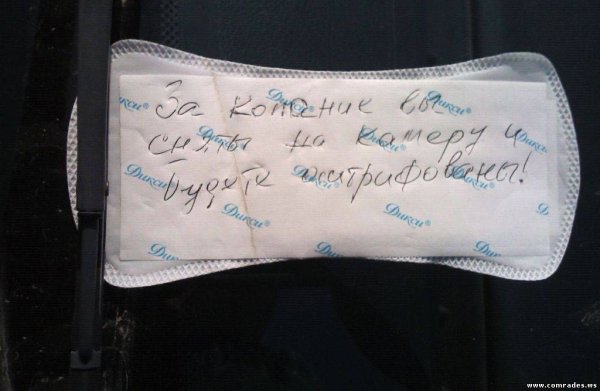 Дикси®
За копание вы
Дикси®
Дикси
сняты на камеру и
Дикси®
Дикси®
Дикси®
будете оштрафованы!
Дикси®
Дикси®
Дикси®
Дикси®
Дикси®
www.comrades.ws